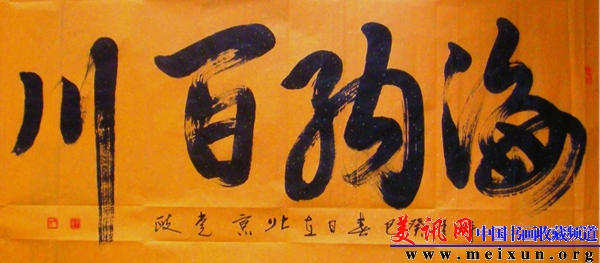 海纳百川
癸巳春日在北京
美讯网 中国书画收藏频道
www.meixun.org